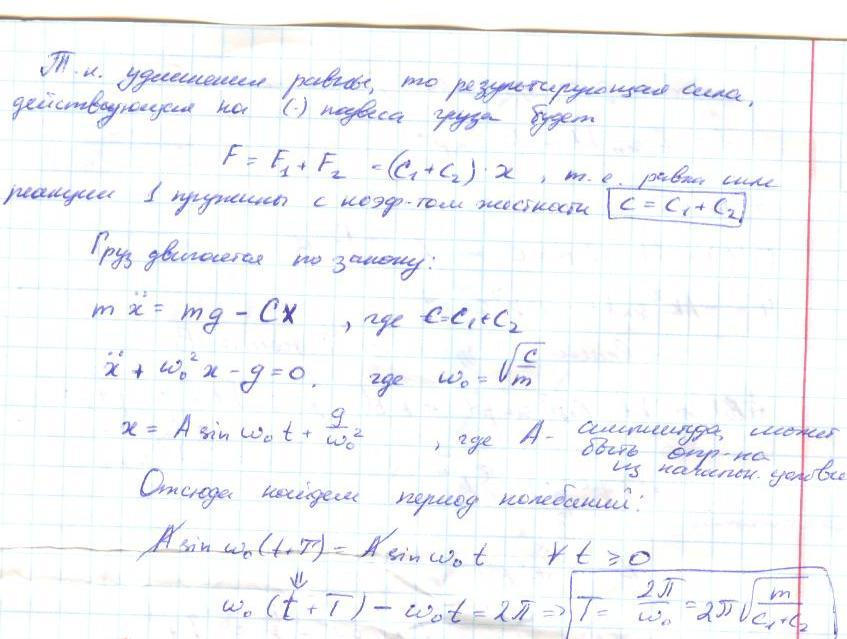 Т.к. удлинения равны, то результирующая сила,
действующая на (·) подвеса груза будет
F = F₁ + F₂ = (c₁+c₂)·x , т.е. равна силе
реакции 1 пружины с коэф-том жесткости c = c₁ + c₂
Груз двигается по закону:
mẍ = mg − Cx , где C=c₁+c₂
ẍ + ω₀²x − g = 0, где ω₀ = √(c/m)
x = A sin ω₀t + g/ω₀² , где A - амплитуда, может
быть опр-на
из начальн. услови
Отсюда найдем период колебаний:
A sin ω₀(t+T) = A sin ω₀t ∀ t ≥ 0
⇓
ω₀(t+T) − ω₀t = 2π => T = 2π/ω₀ = 2π√(m/(c₁+c₂))